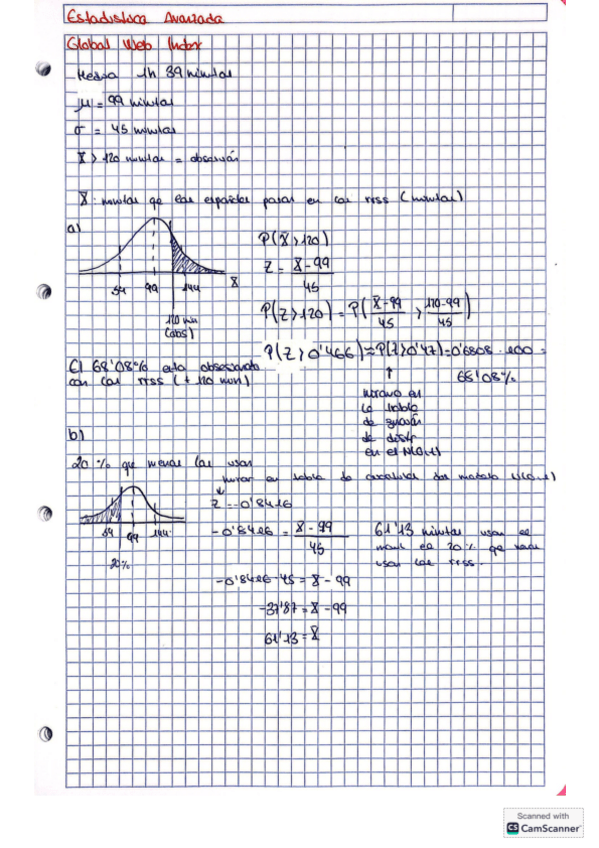 Estadística Avanzada
Global Web Index
- Media 1h 39 minutos
μ = 99 minutos
σ = 45 minutos
X > 120 minutos = obsesión
X: minutos que los españoles pasan en las rrss (minutos)
a)
54 99 144 X
(obs)
P(X > 120)
Z = X - 99 / 45
P(Z > 120) = P( X - 99 / 45 > 120 - 99 / 45 )
P(Z > 0'466) ≈ P(Z > 0'47) = 0'6808 · 100 =
68'08%
El 68'08% está obsesionado
con las rrss
↑
en la tabla
de
en el N(0,1)
b)
20% que menos las usan
mirar en tabla de cuantiles del modelo N(0,1)
↓
Z = -0'8416
54 99 144
20%
-0'8416 = X - 99 / 45
-0'8416 · 45 = X - 99
-37'87 = X - 99
61'13 = X
61'13 minutos usan el
el 20% que menos
usan las rrss.
Scanned with
CS CamScanner